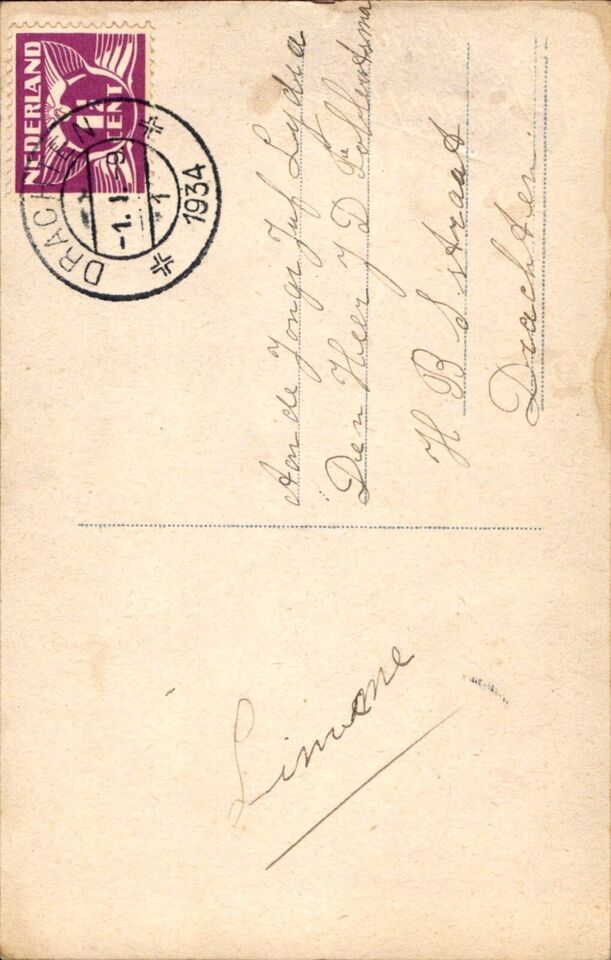 NEDERLAND
1½ CENT
DRACHTEN
-1.I.-9
1
1934
Aan de Jonge Juf Lydia
Den Heer J D
H B S straat
Drachten.
Simone